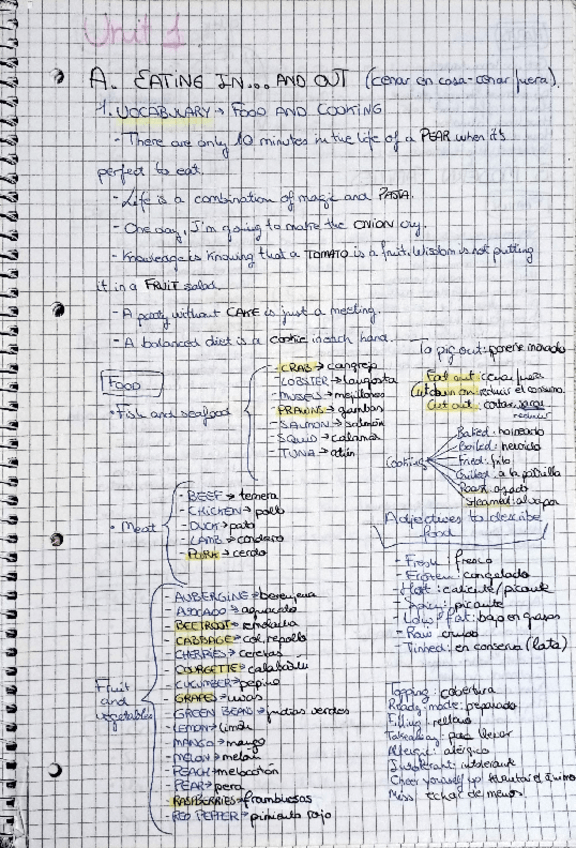 Unit 1
A. EATING IN... AND OUT (cenar en casa-cenar fuera).
1. VOCABULARY → FOOD AND COOKING
- There are only 10 minutes in the life of a PEAR when it's
perfect to eat.
- Life is a combination of magic and PASTA.
- One day, I'm going to make the ONION cry.
- Knowledge is knowing that a TOMATO is a fruit, wisdom is not putting
it in a FRUIT salad.
- A party without CAKE is just a meeting.
- A balanced diet is a cookie in each hand.
Food
• Fish and seafood
- CRAB → cangrejo
- LOBSTER → langosta
- MUSELS → mejillones
- PRAWNS → gambas
- SALMON → salmón
- SQUID → calamar
- TUNA → atún
To pig out: ponerse morado
Eat out: cenar fuera
Cut down on: reducir el consumo
Cut out: cortar, sacar
reducir
Cooking
Baked: horneado
Boiled: hervido
Fried: frito
Grilled: a la parrilla
Roast: asado
Steamed: al vapor
• Meat
- BEEF → ternera
- CHICKEN → pollo
- DUCK → pato
- LAMB → cordero
- PORK → cerdo
Adjectives to describe
food
- Fresh: fresco
- Frozen: congelado
- Hot: caliente/picante
- Spicy: picante
- Low fat: bajo en grasas
- Raw: crudo
- Tinned: en conserva (lata)
Fruit
and
vegetables
- AUBERGINE → berenjena
- AVOCADO → aguacate
- BEETROOT → remolacha
- CABBAGE → col, repollo
- CHERRIES → cerezas
- COURGETTE → calabacín
- CUCUMBER → pepino
- GRAPES → uvas
- GREEN BEANS → judías verdes
- LEMON → limón
- MANGO → mango
- MELON → melón
- PEACH → melocotón
- PEAR → pera
- RASPBERRIES → frambuesas
- RED PEPPER → pimiento rojo
Topping: cobertura
Ready made: preparado
Filling: relleno
Takeaway: para llevar
Allergic: alérgico
Intolerant: intolerante
Cheer yourself up: levantar el ánimo
Miss: echar de menos